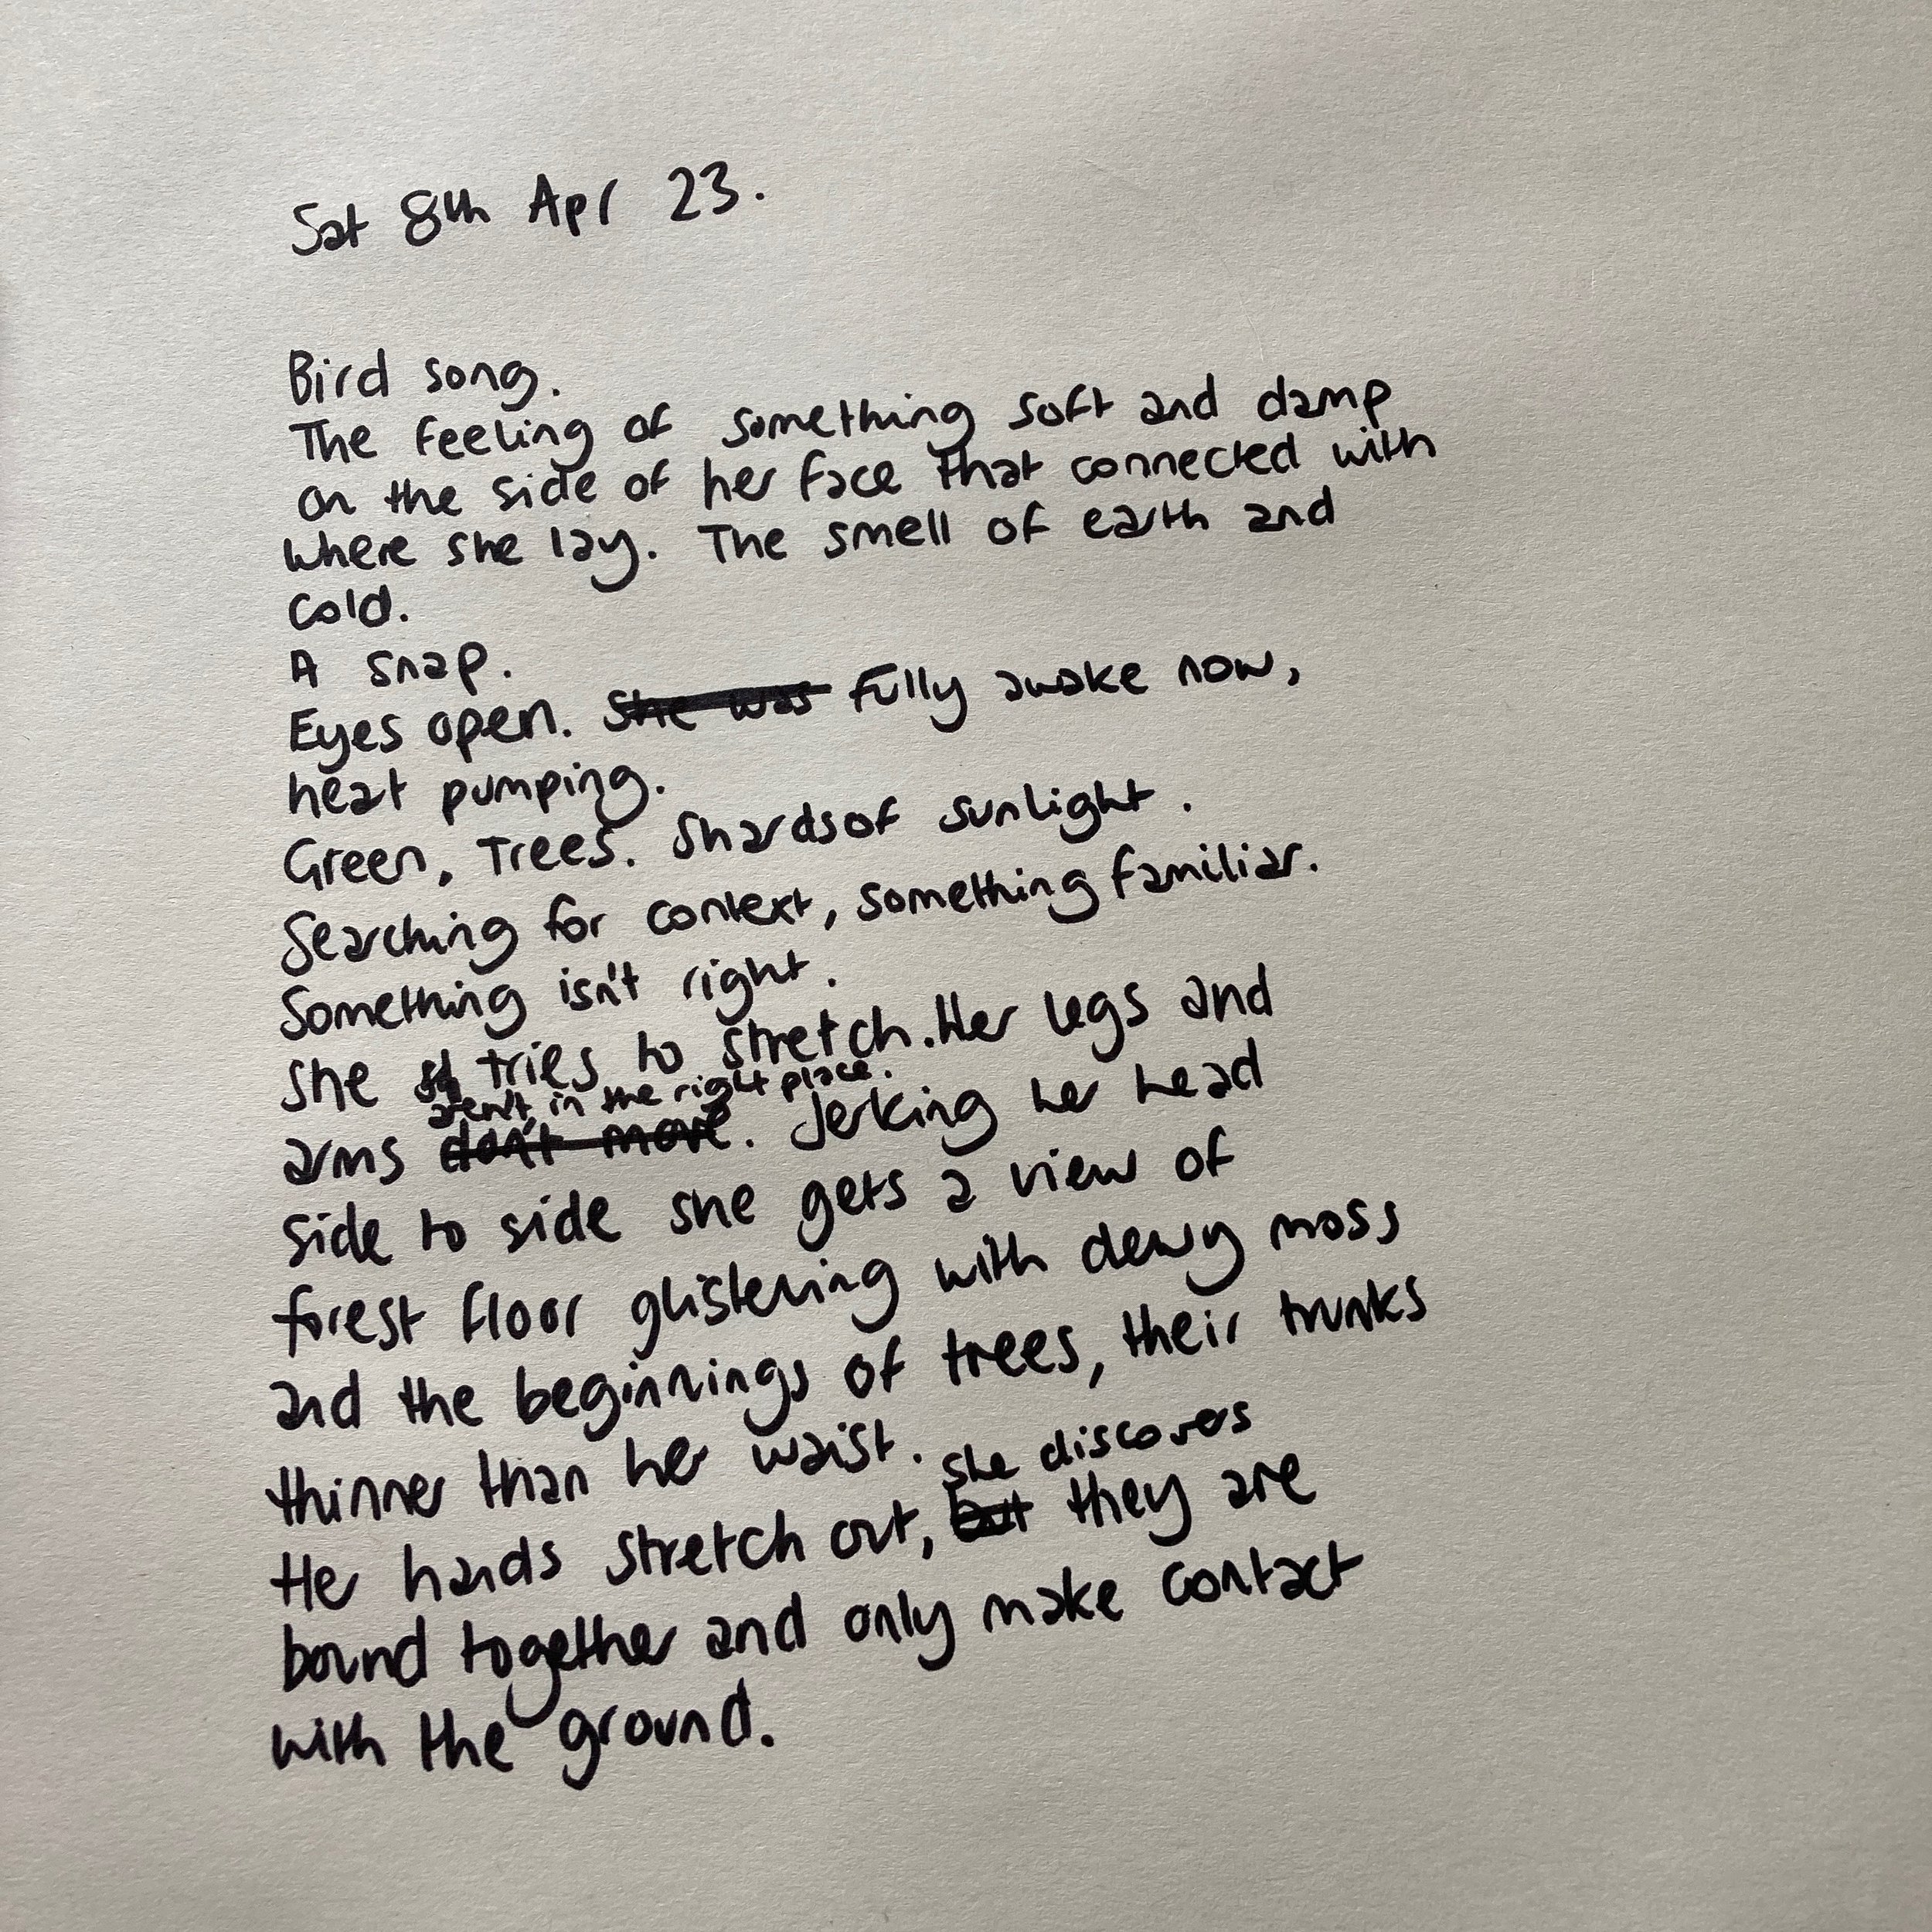 Sat 8th Apr 23.
Bird song.
The feeling of something soft and damp
on the side of her face that connected with
where she lay. The smell of earth and
cold.
A snap.
Eyes open. She was Fully awake now,
heat pumping.
Green. Trees. Shards of sunlight.
Searching for context, something familiar.
Something isn't right.
She st tries to stretch. Her legs and
aren't in the right place.
arms don't move. Jerking her head
side to side she gets a view of
forest floor glistening with dewy moss
and the beginnings of trees, their trunks
thinner than her waist.
she discovers
He hands stretch out, but they are
bound together and only make contact
with the ground.